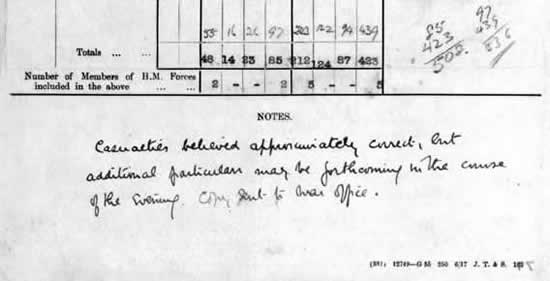 55 16 26 97 202 122 94 439
Totals ... ... 48 14 23 85 212 124 87 423
Number of Members of H.M. Forces
included in the above ... ... 2 - - 2 5 - - 5
85
423
508
97
439
536
NOTES.
Casualties believed approximately correct, but
additional particulars may be forthcoming in the course
of the evening. Copy sent to War Office.
12749—G 55 250 6/17 J. T. & S.